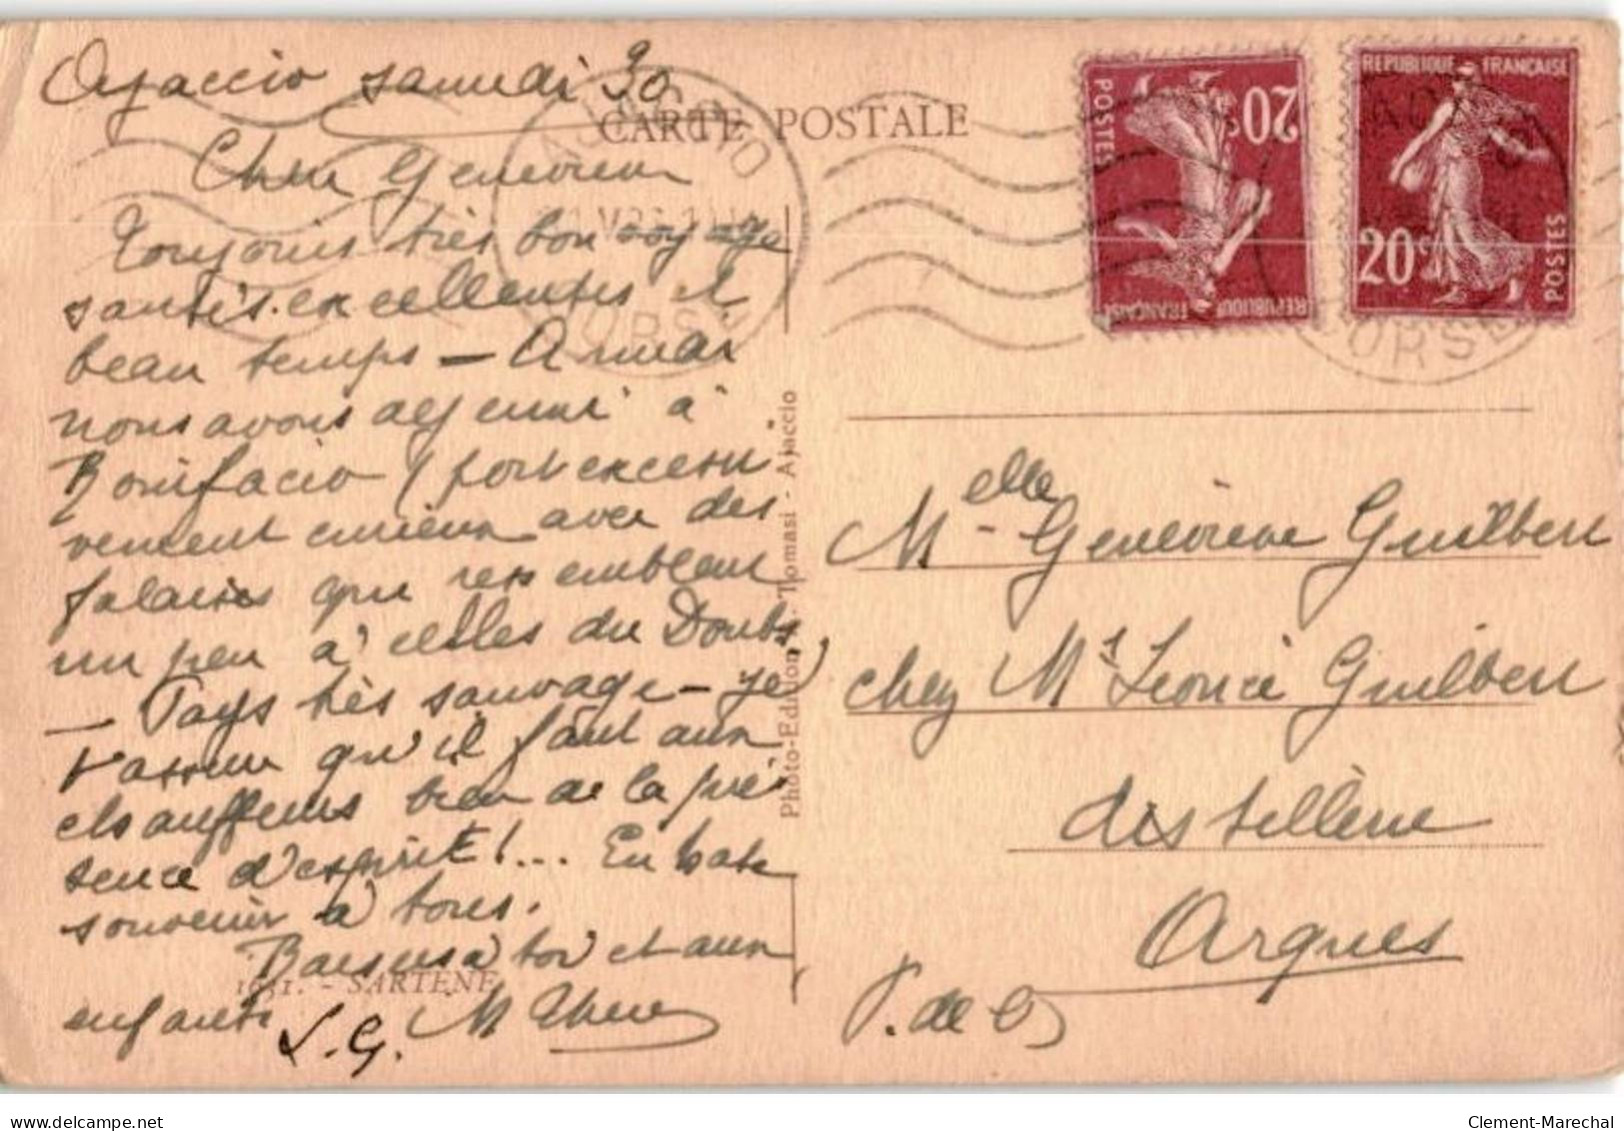 Ajaccio samedi 30
CARTE POSTALE
Chère Geneviève
Toujours très bon voyage
santés excellentes et
beau temps — A midi
nous avons déjeuné à
Bonifacio (port excessi
vement curieux avec des
falaises qui ressemblent
un peu à celles du Doubs)
— Pays très sauvage — je
t'assure qu'il faut aux
chauffeurs bien de la pré
sence d'esprit ! ... En hâte
souvenir à tous.
Baisers à toi et aux
enfants
L. G.
1031. - SARTÈNE
Photo-Edition - Tomasi - Ajaccio
AJACCIO
CORSE
POSTES
20c
REPUBLIQUE FRANÇAISE
REPUBLIQUE FRANÇAISE
20c
POSTES
CORSE
Melle Geneviève Guilbert
chez Mr Léonce Guilbert
distillerie
Arques
P. de C.
delcampe.net
Clement-Marechal